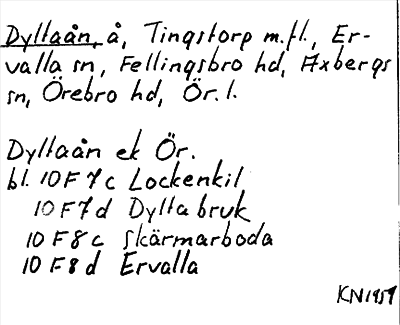 Dyltaån, å, Tingstorp m.fl., Er-
valla sn, Fellingsbro hd, Axbergs
sn, Örebro hd, Ör. l.
Dyltaån ek Ör.
bl. 10F7c Lockenkil
10F7d Dylta bruk
10F8c Skärmarboda
10F8d Ervalla
KN1959